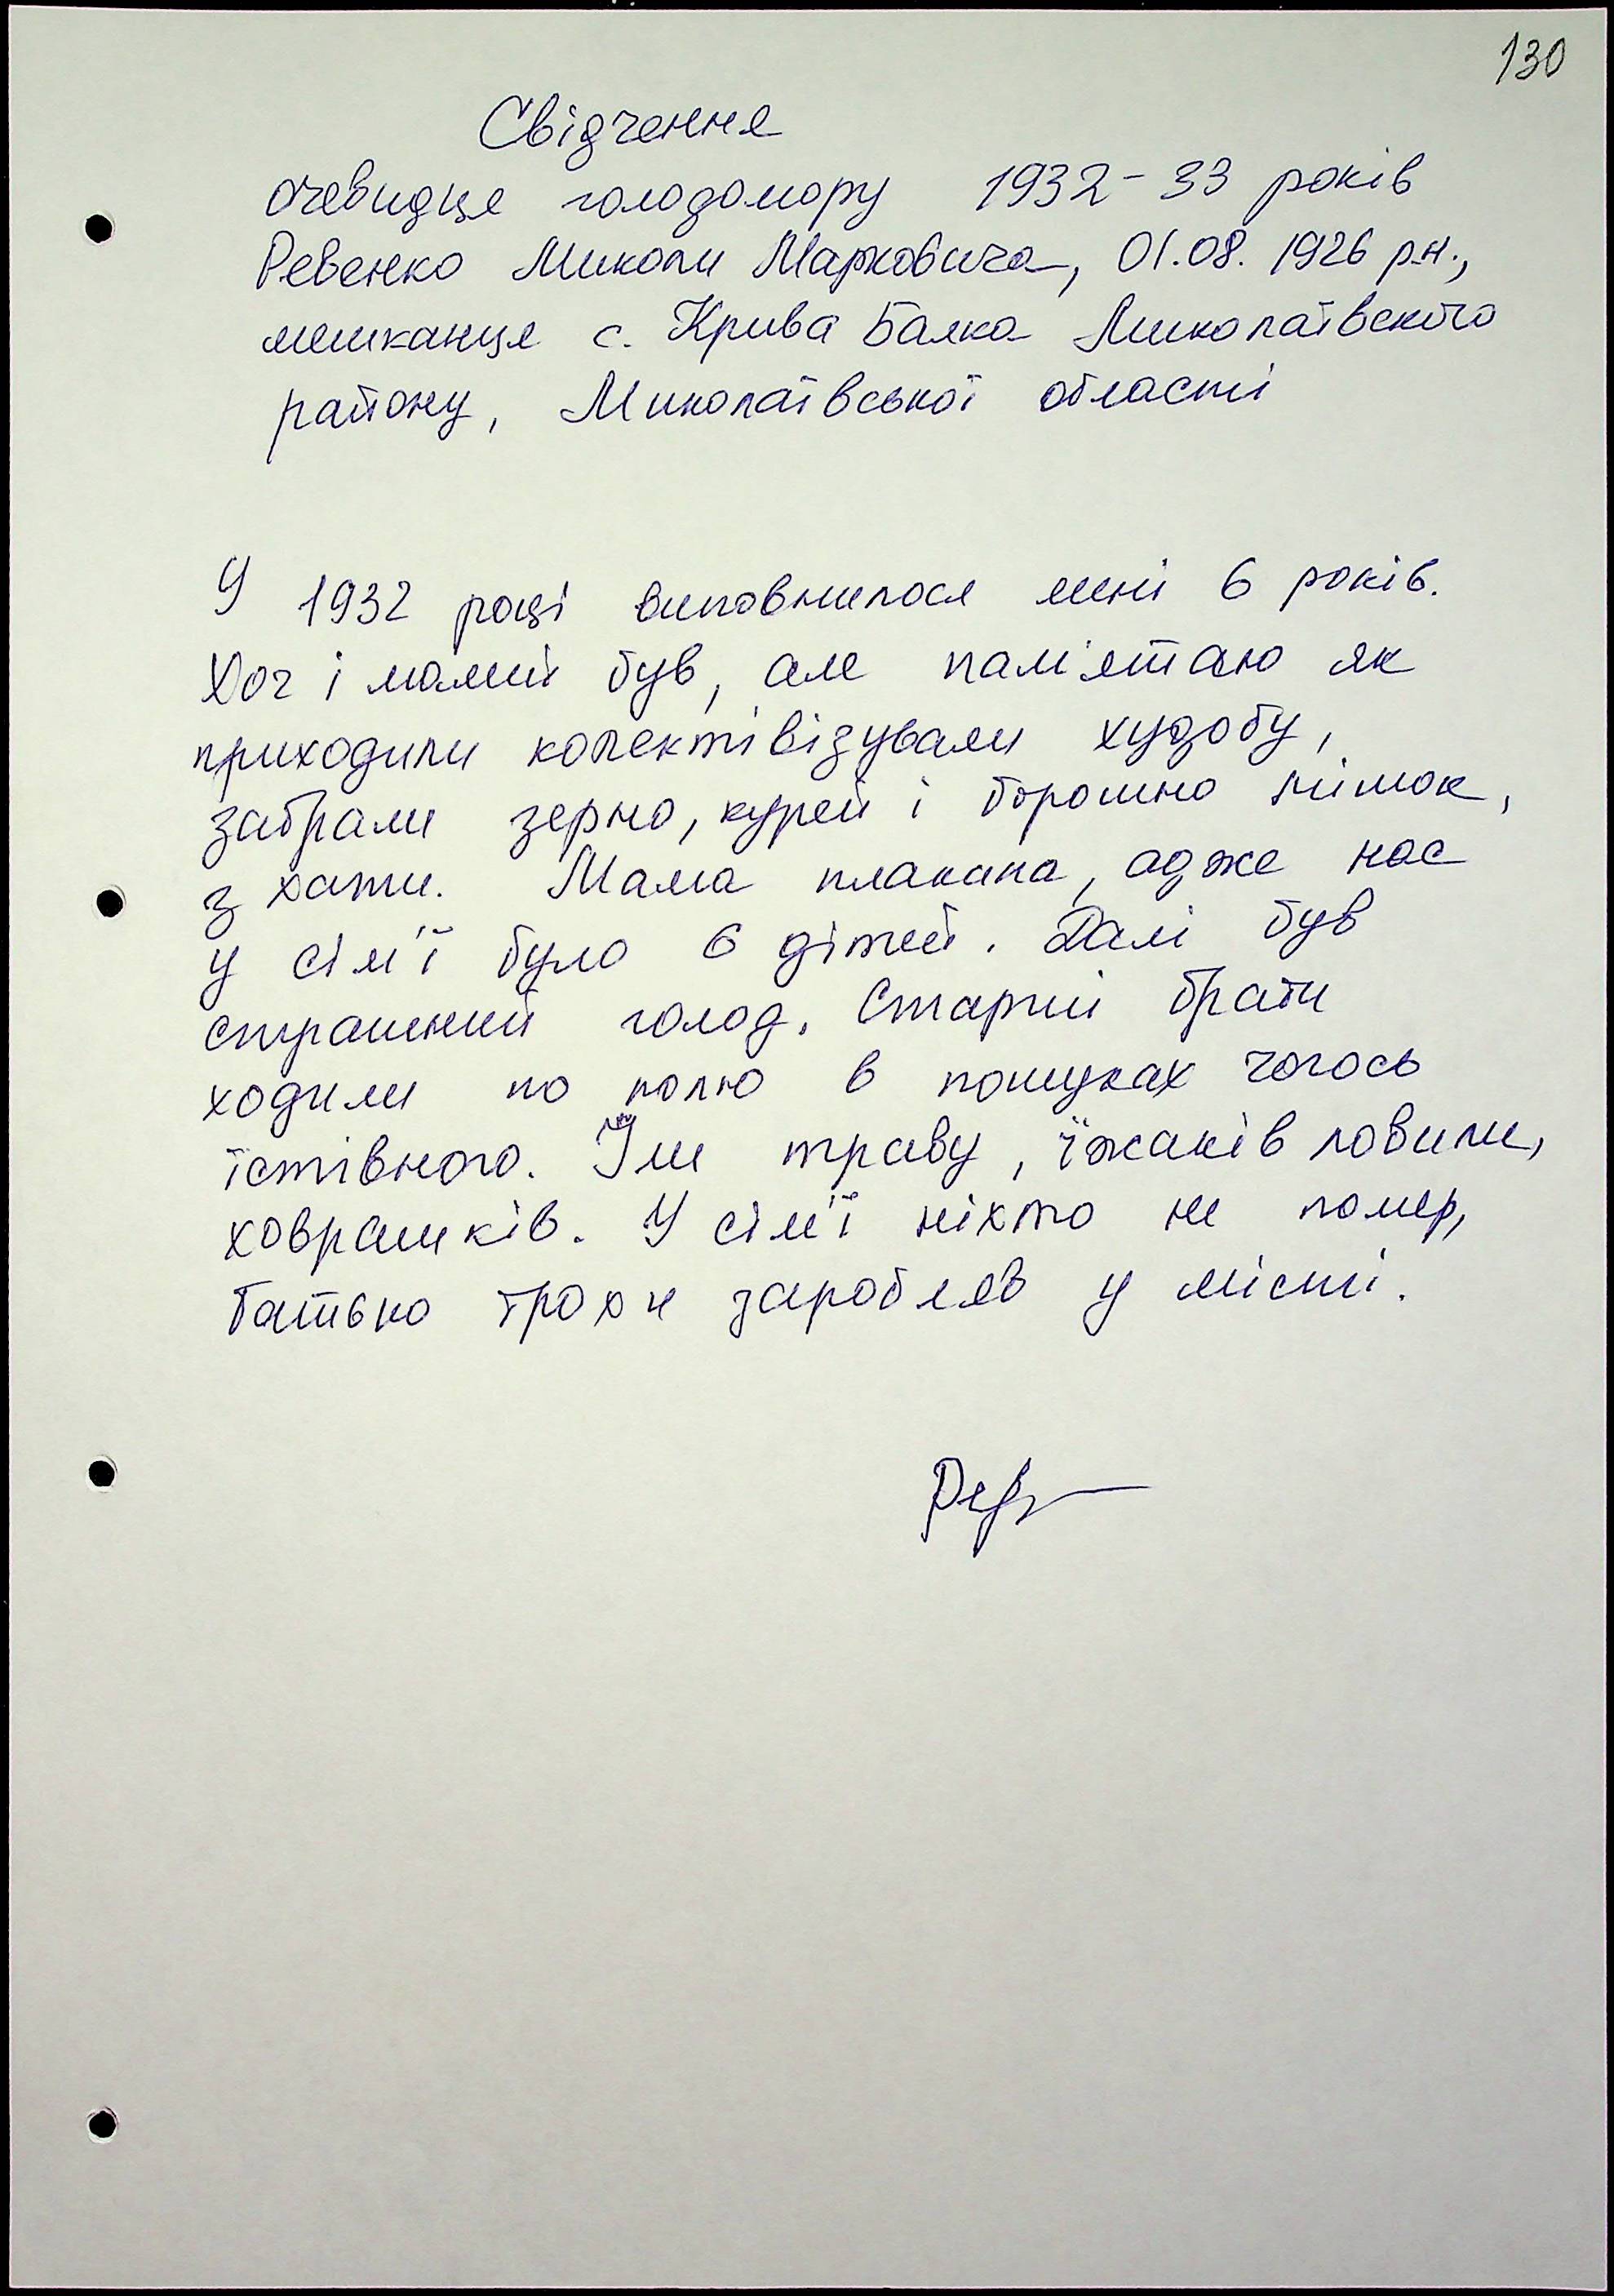 130
Свідчення
очевидця голодомору 1932-33 років
Ревенко Миколи Марковича, 01.08.1926 р.н.,
мешканця с. Крива Балка Миколаївского
району, Миколаївської області
У 1932 році виповнилося мені 6 років.
Хоч і малий був, але пам'ятаю як
приходили колектівізували худобу,
забрали зерно, курей і борошно мішок,
з хати. Мама плакала, адже нас
у сім'ї було 6 дітей. Далі був
страшний голод. Старші брати
ходили по полю в пошуках чогось
їстівного. Їли траву, їжаків ловили,
ховрашків. У сім'ї ніхто не помер,
батько трохи заробляв у місті.